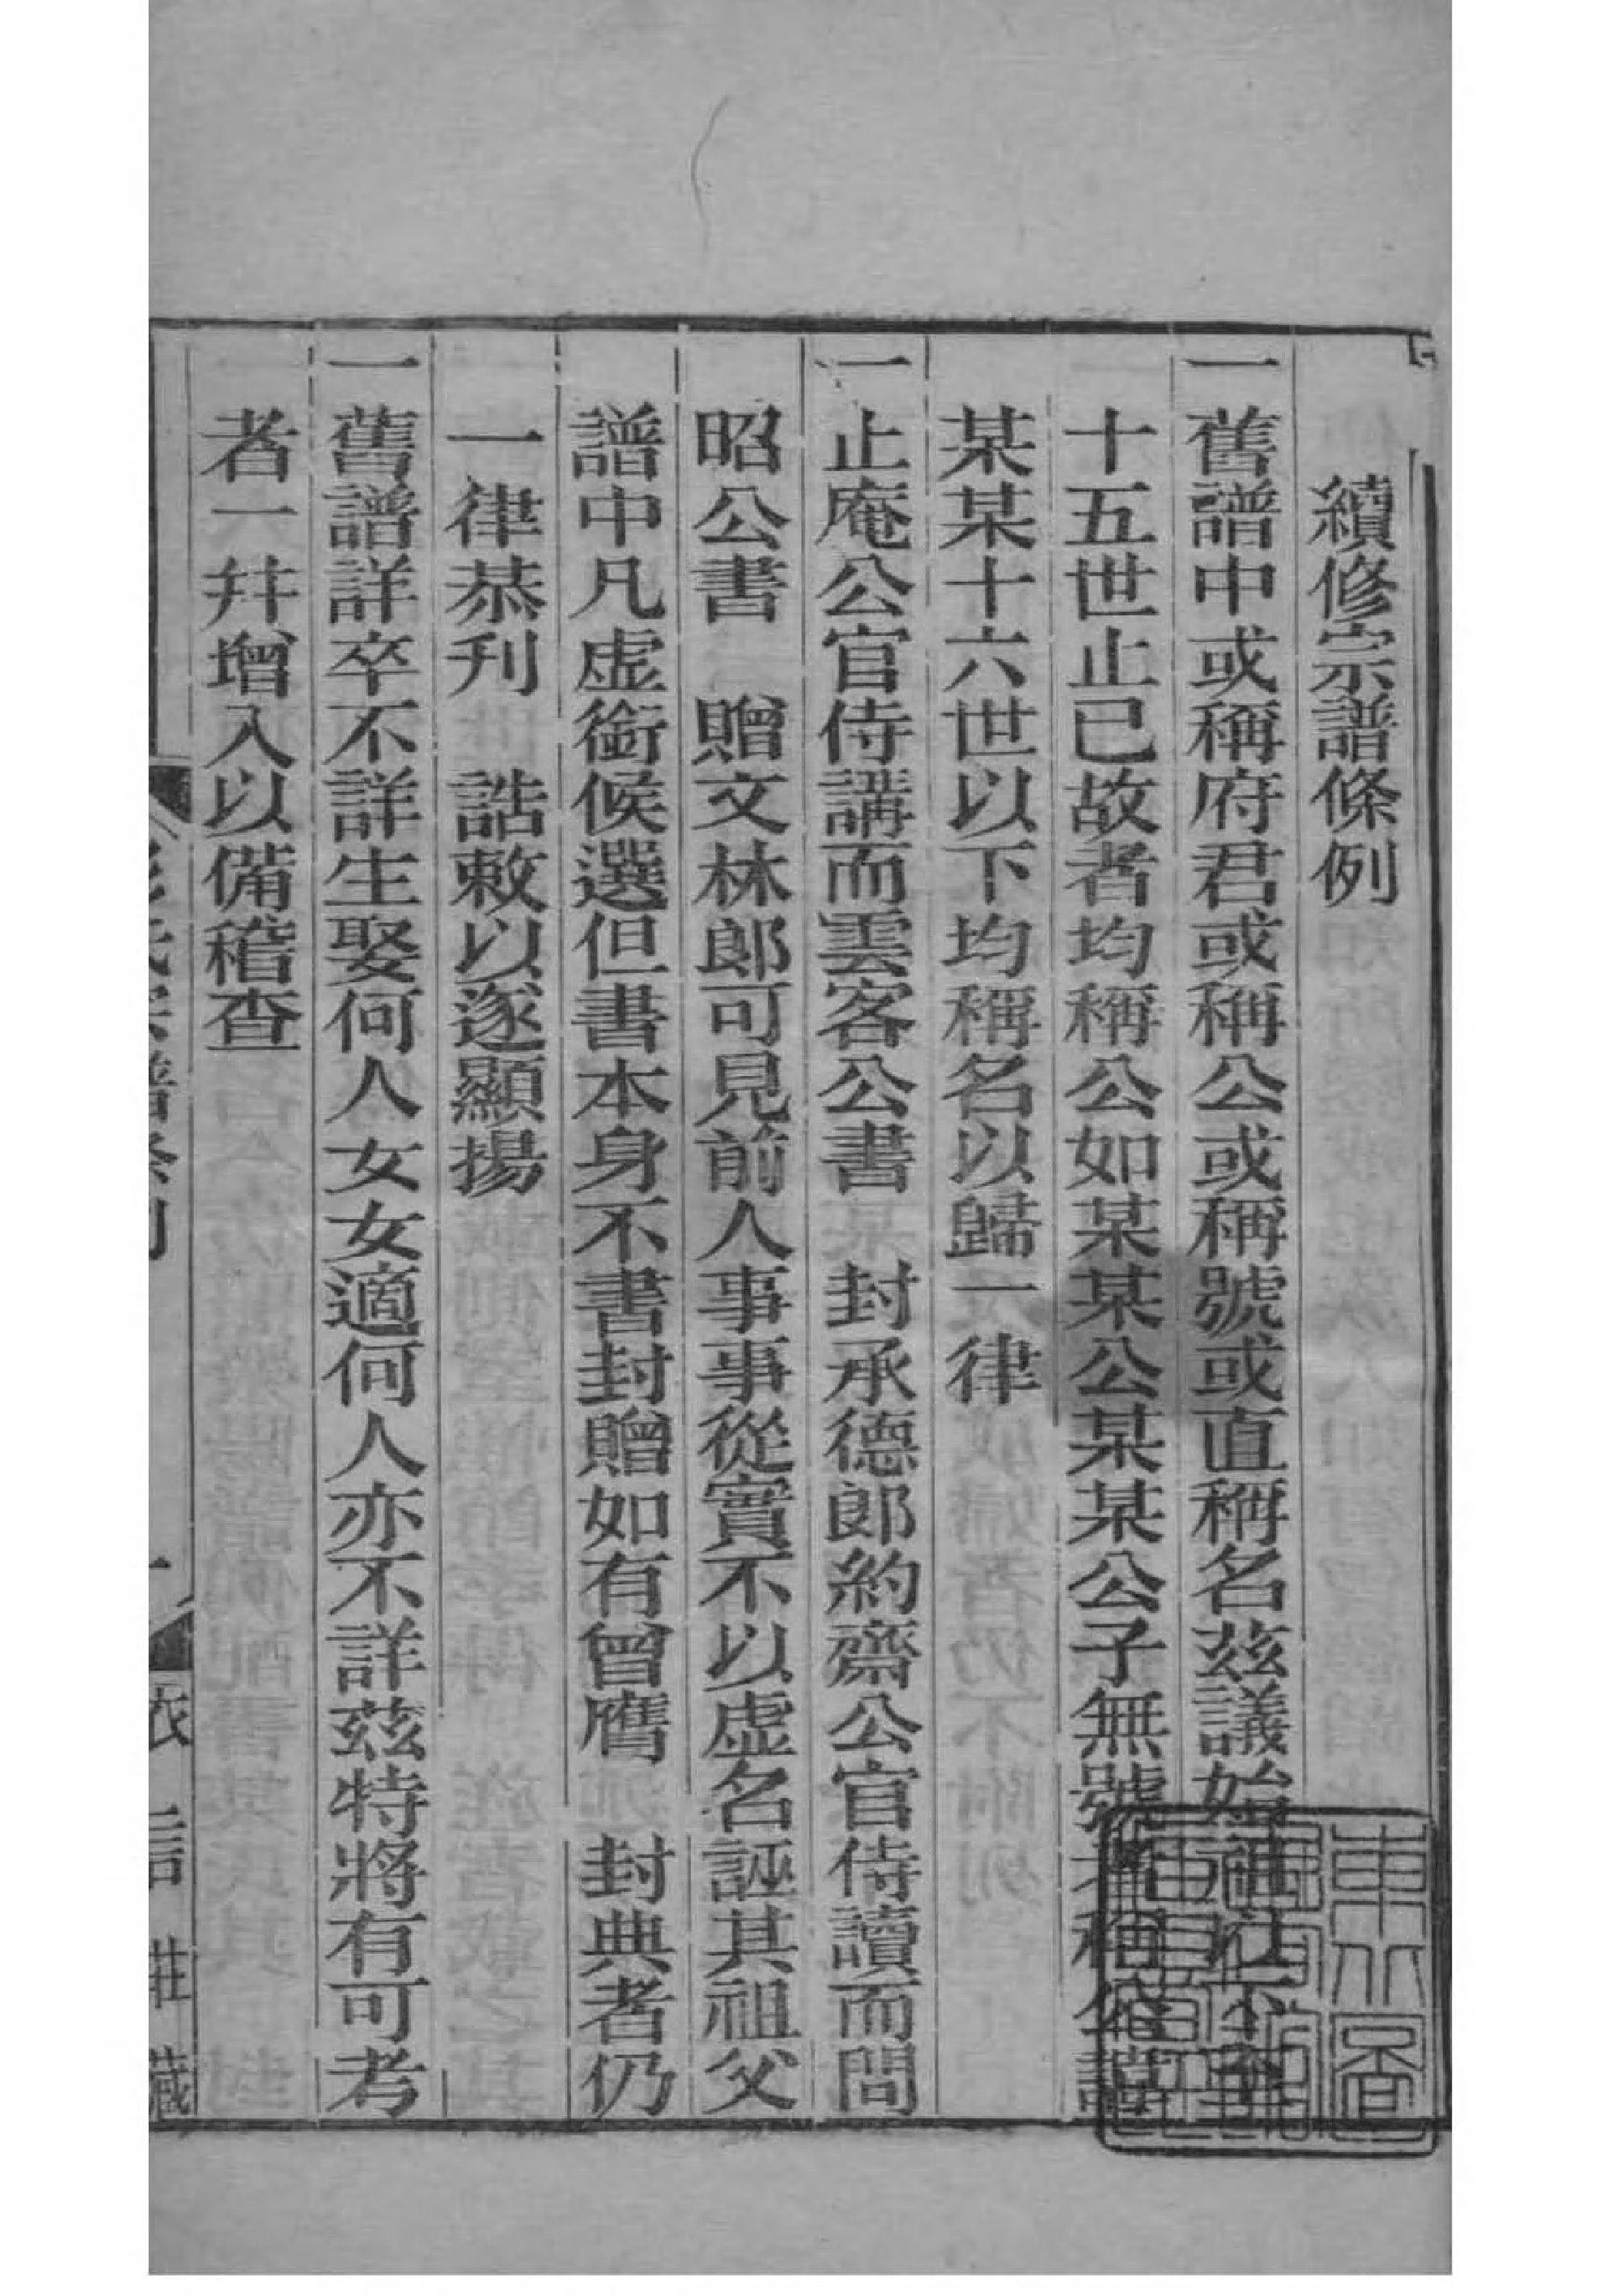 續修宗譜條例
一舊譜中或稱府君或稱公或稱號或直稱名茲議始祖以下至
十五世止已故者均稱公如某某公某某公子無號者稱公諱
某某十六世以下均稱名以歸一律
一止庵公官侍講而雲客公書　封承德郎約齋公官侍讀而問
昭公書　贈文林郎可見前人事事從實不以虛名誣其祖父
譜中凡虛銜候選但書本身不書封贈如有曾膺　封典者仍
一律恭刋　誥敕以遂顯揚
一舊譜詳卒不詳生娶何人女女適何人亦不詳茲特將有可考
者一幷增入以備稽查
宗譜條例
一
莊藏